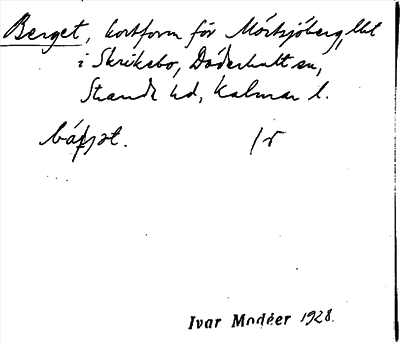 Berget, kortform för Mörtsjöberg, lht
i Skriksbo, Döderhult sn,
Strands hd, Kalmar l.
Ivar Modéer 1928.